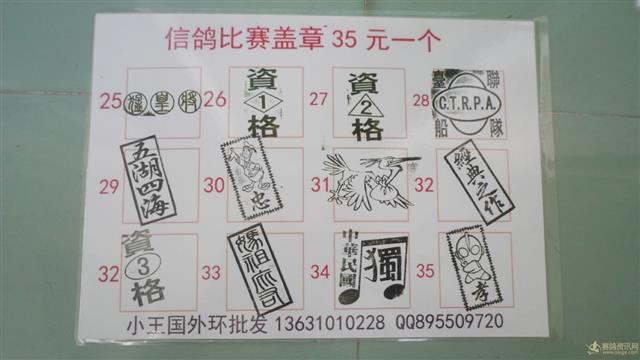 信鸽比赛盖章 35 元一个
25
皇
26
資
1
格
27
資
2
格
28
臺 聯
C.T.R.P.A.
船 隊
29
五湖四海
30
忠
31
32
經典之作
32
資
3
格
33
媽祖
34
中華民國
獨
35
孝
小王国外环批发 13631010228 QQ895509720
赛鸽资讯网